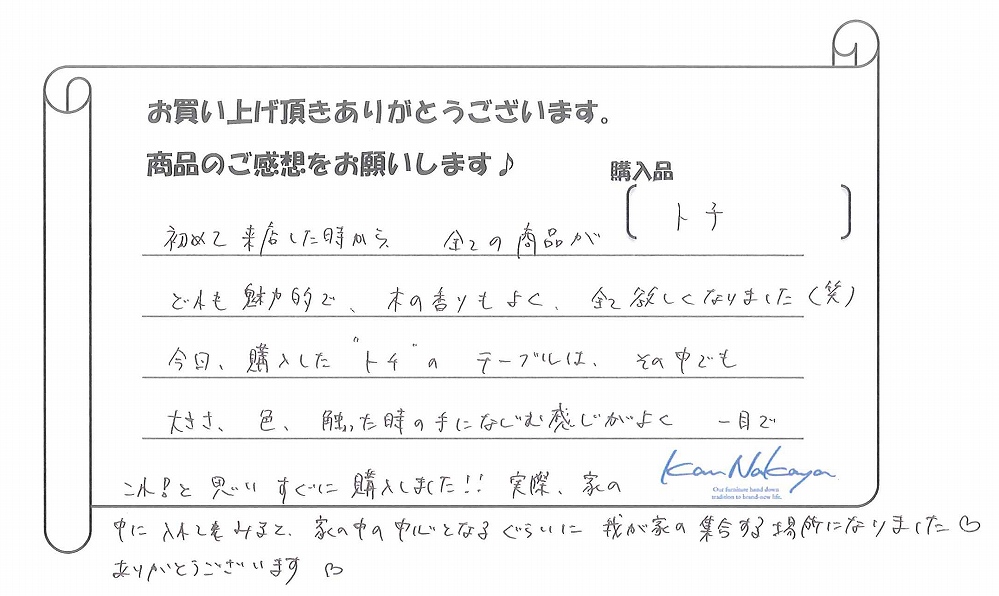 お買い上げ頂きありがとうございます。
商品のご感想をお願いします♪
購入品
トチ
初めて来店した時から 全ての商品が
どれも魅力的で、木の香りもよく、全て欲しくなりました(笑)
今回、購入した"トチ"の テーブルは、その中でも
大きさ、色、触った時の手になじむ感じがよく 一目で
これ!と思い すぐに購入しました!! 実際、家の
Kan Nakaya
Our furniture hand down
tradition to brand-new life.
中に入れてみると、家の中の中心となるぐらいに 我が家の集合する場所になりました♡
ありがとうございます ♡